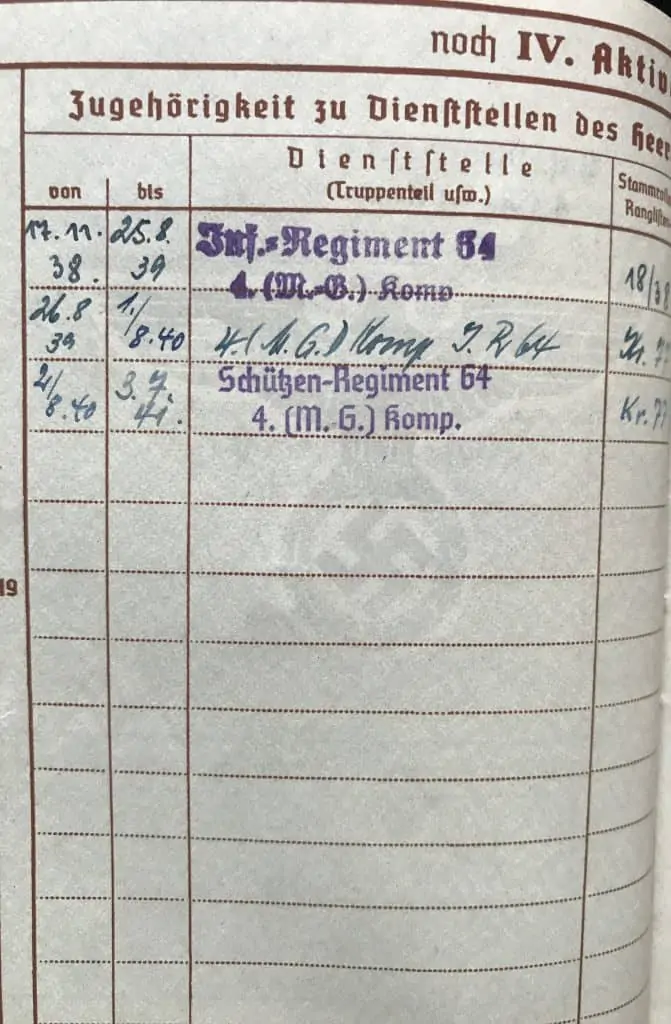 noch IV. Aktiv
Zugehörigkeit zu Dienststellen des Heer
von bis Dienststelle
(Truppenteil usw.)
Stammrol
Ranglist
17.11. 38. 25.8. 39 Inf.=Regiment 64
4. (M.=G.) Komp
18/38
26.8 39 1./8.40 4.(M.G.) Komp J.R 64
Kr. 77
2/8.40 3.7 41. Schützen-Regiment 64
4. (M.G.) Komp.
Kr. 77
19